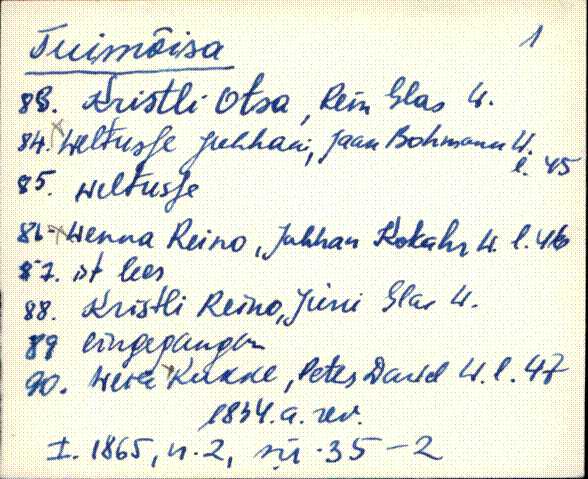 Tuimõisa 1
83. Kristli Otsa, Rein Glas W.
84. Weltusse Juhhani, Jaan Bohmann W.
l. 45
85. Weltusse
86. Wenna Reino, Juhhan Kokahr W. l. 46
87. ist leer
88. Kristli Reino, Jürri Glas W.
89 eingegangen
90. Wera Kukke, Peter David W. l. 47
1834. a. rev.
I. 1865, n. 2, sü. 35-2